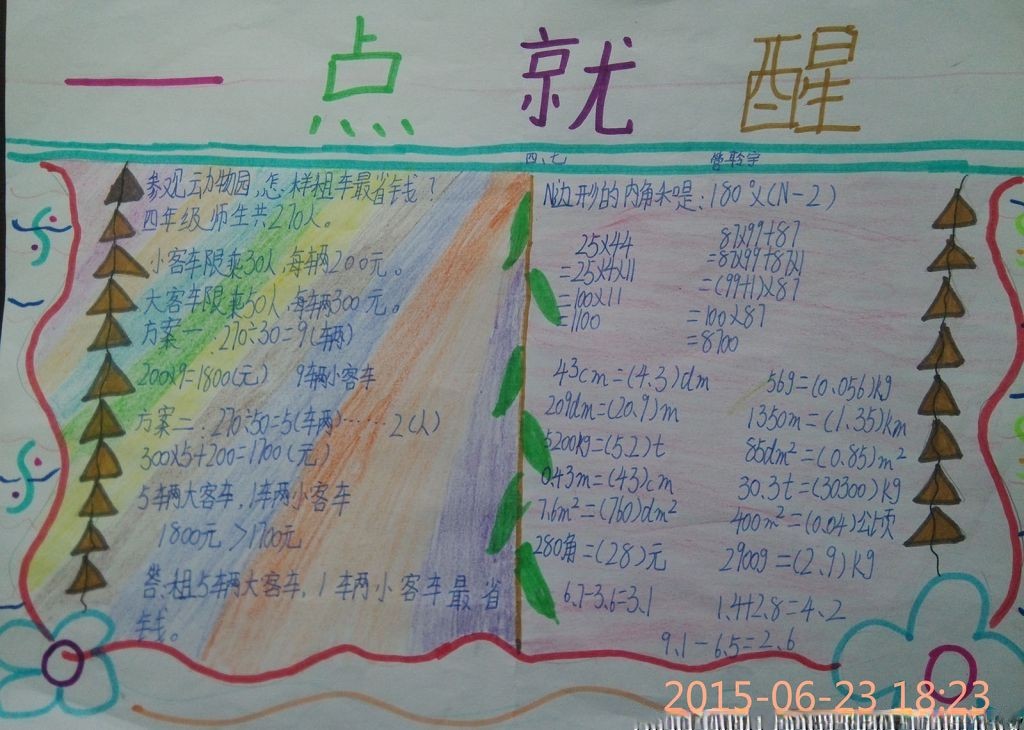 一点就醒
四、七
参观动物园,怎样租车最省钱?
四年级师生共270人。
小客车限乘30人,每辆200元。
大客车限乘50人,每辆300元。
方案一:270÷30=9(辆)
200×9=1800(元) 9辆小客车
方案二:270÷50=5(车辆)……2(人)
300×5+200=1700(元)
5辆大客车,1车两小客车
1800元>1700元
答:租5车两大客车,1车两小客车最省
钱。
N边形的内角和是:180°×(N-2)
25×44
=25×4×11
=100×11
=1100
87×99+87
=87×99+87×1
=(99+1)×87
=100×87
=8700
43cm=(4.3)dm
209dm=(20.9)m
5200kg=(5.2)t
0.43m=(43)cm
7.6m²=(760)dm²
280角=(28)元
56g=(0.056)kg
1350m=(1.35)km
85dm²=(0.85)m²
30.3t=(30300)kg
400m²=(0.04)公顷
2900g=(2.9)kg
6.7-3.6=3.1
1.4+2.8=4.2
9.1-6.5=2.6
2015-06-23 18:23